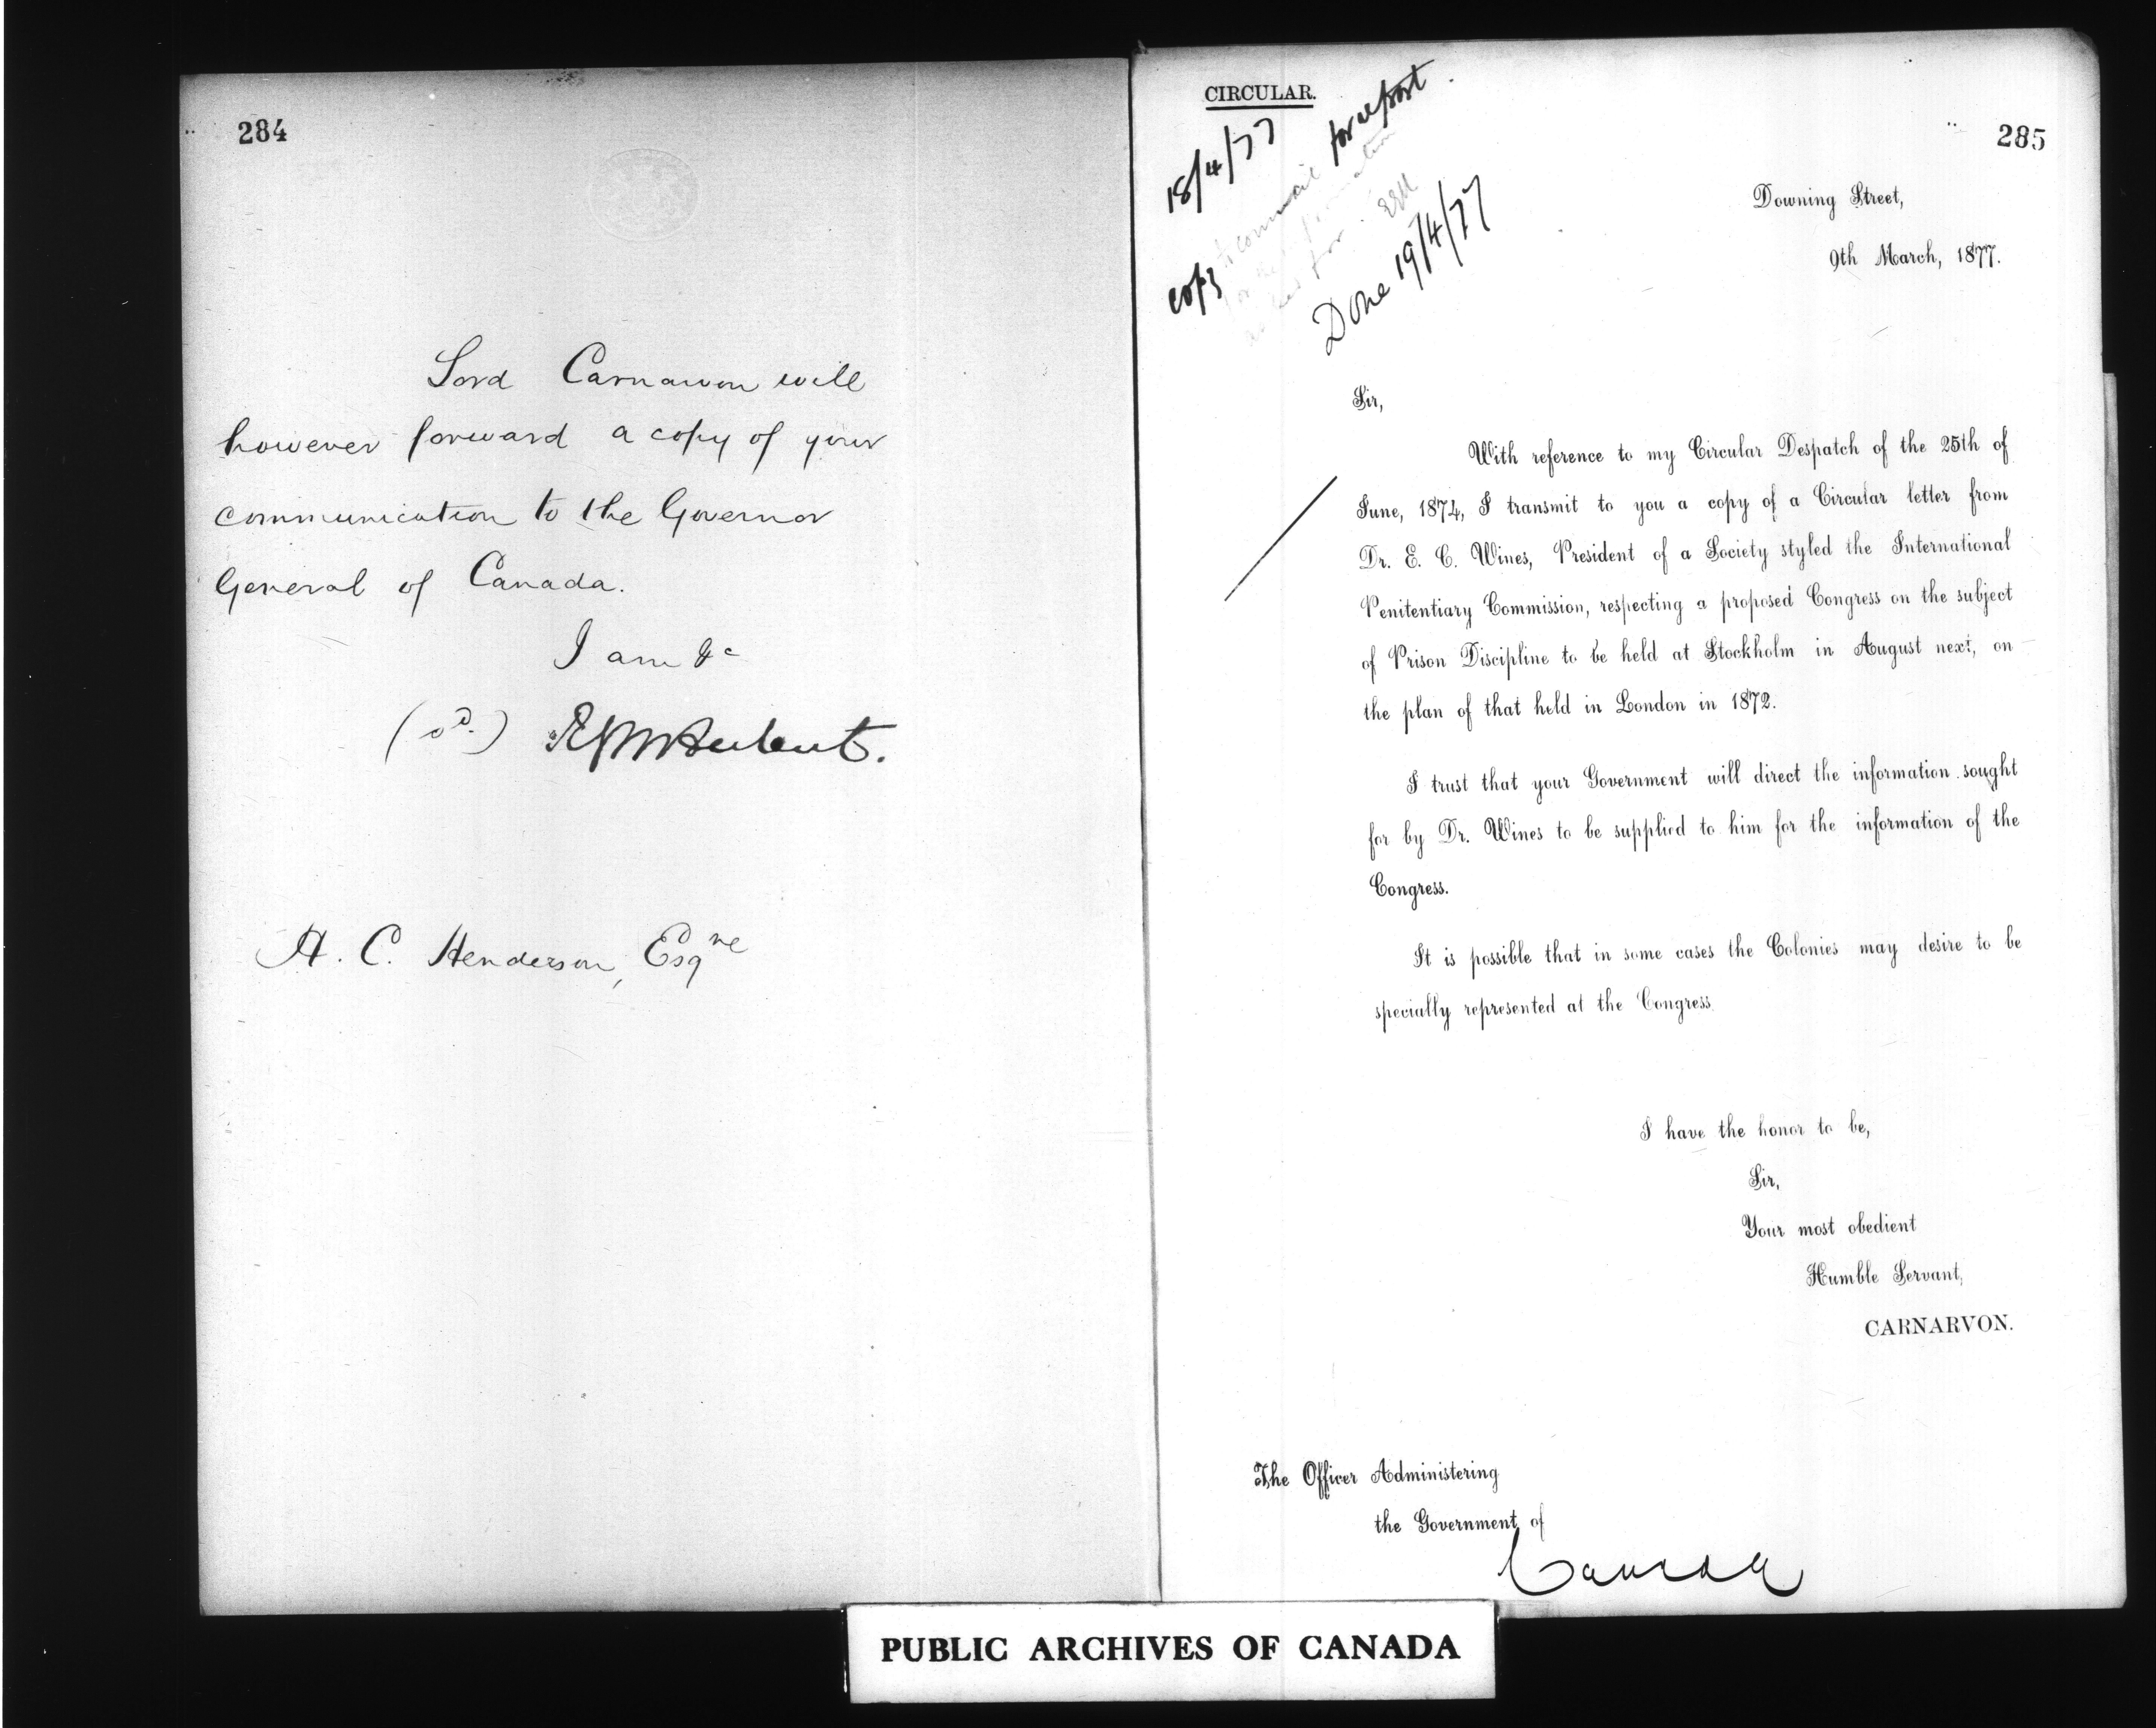 284
Lord Carnarvon will
however forward a copy of your
communication to the Governor
General of Canada.
I am &c
(sd.) R G W Herbert.
A. C. Henderson, Esqre
CIRCULAR.
285
18/4/77
copy to council for report.
Done 19/4/77
Downing Street,
9th March, 1877.
Sir,
With reference to my Circular Despatch of the 25th of
June, 1874, I transmit to you a copy of a Circular letter from
Dr. E. C. Wines, President of a Society styled the International
Penitentiary Commission, respecting a proposed Congress on the subject
of Prison Discipline to be held at Stockholm in August next, on
the plan of that held in London in 1872.
I trust that your Government will direct the information sought
for by Dr. Wines to be supplied to him for the information of the
Congress.
It is possible that in some cases the Colonies may desire to be
specially represented at the Congress.
I have the honor to be,
Sir,
Your most obedient
Humble Servant,
CARNARVON.
The Officer Administering
the Government of
Canada
PUBLIC ARCHIVES OF CANADA